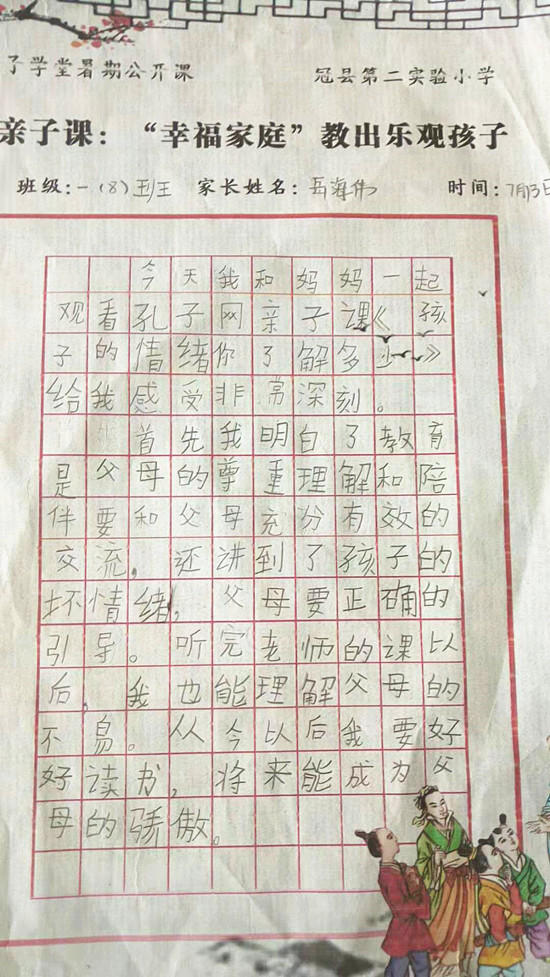 了学堂暑期公开课 冠县第二实验小学
亲子课：“幸福家庭”教出乐观孩子
班级：一（8）班 家长姓名：岳海伟 时间：7月13日
今天我和妈妈一起
观看孔子网亲子课《孩
子的情绪你了解多少》
给我感受非常深刻。
首先我明白了教育
是父母的尊重理解和陪
伴要和父母充分有效的
交流，还讲到了孩子的
坏情绪，父母要正确的
引导。听完老师的课以
后，我也能理解父母的
不易。从今以后我要好
好读书，将来能成为父
母的骄傲。